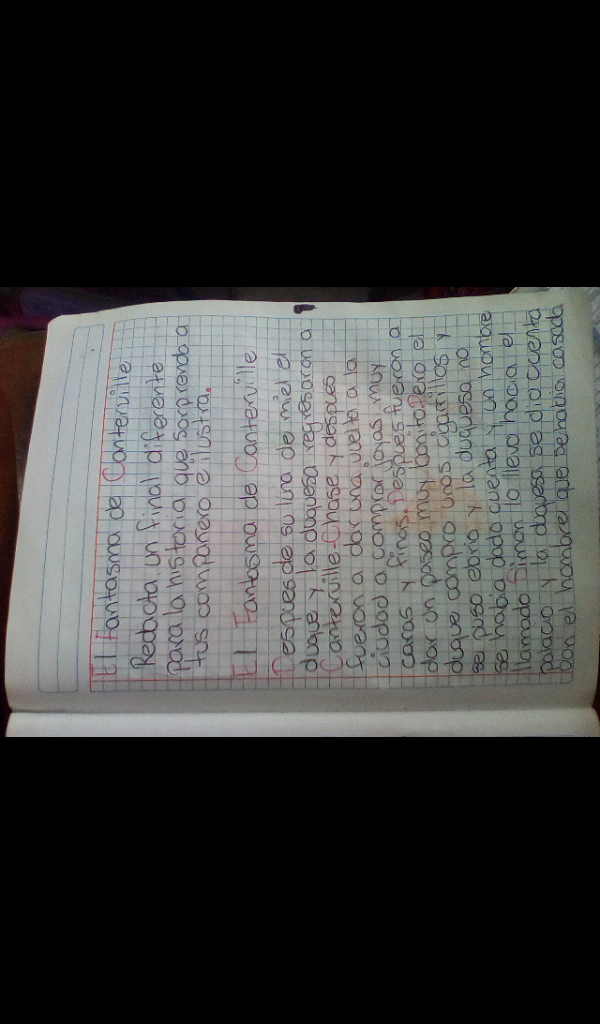 El Fantasma de Canterville
Redacta un final diferente
para la historia que sorprenda a
tus compañero e ilustra.
El Fantasma de Canterville
Despues de su luna de miel el
duque y la duquesa regresaron a
Canterville-Chase y despues
fueron a dar una vuelta a la
ciudad a comprar joyas muy
caras y finas. Despues fueron a
dar un paseo muy bonito. Pero el
duque compro unos cigarrillos y
se puso ebrio y la duquesa no
se habia dado cuenta y un hombre
llamado Simon lo llevo hacia el
palacio y la duqesa se dio cuenta
con el hombre que se habia casada